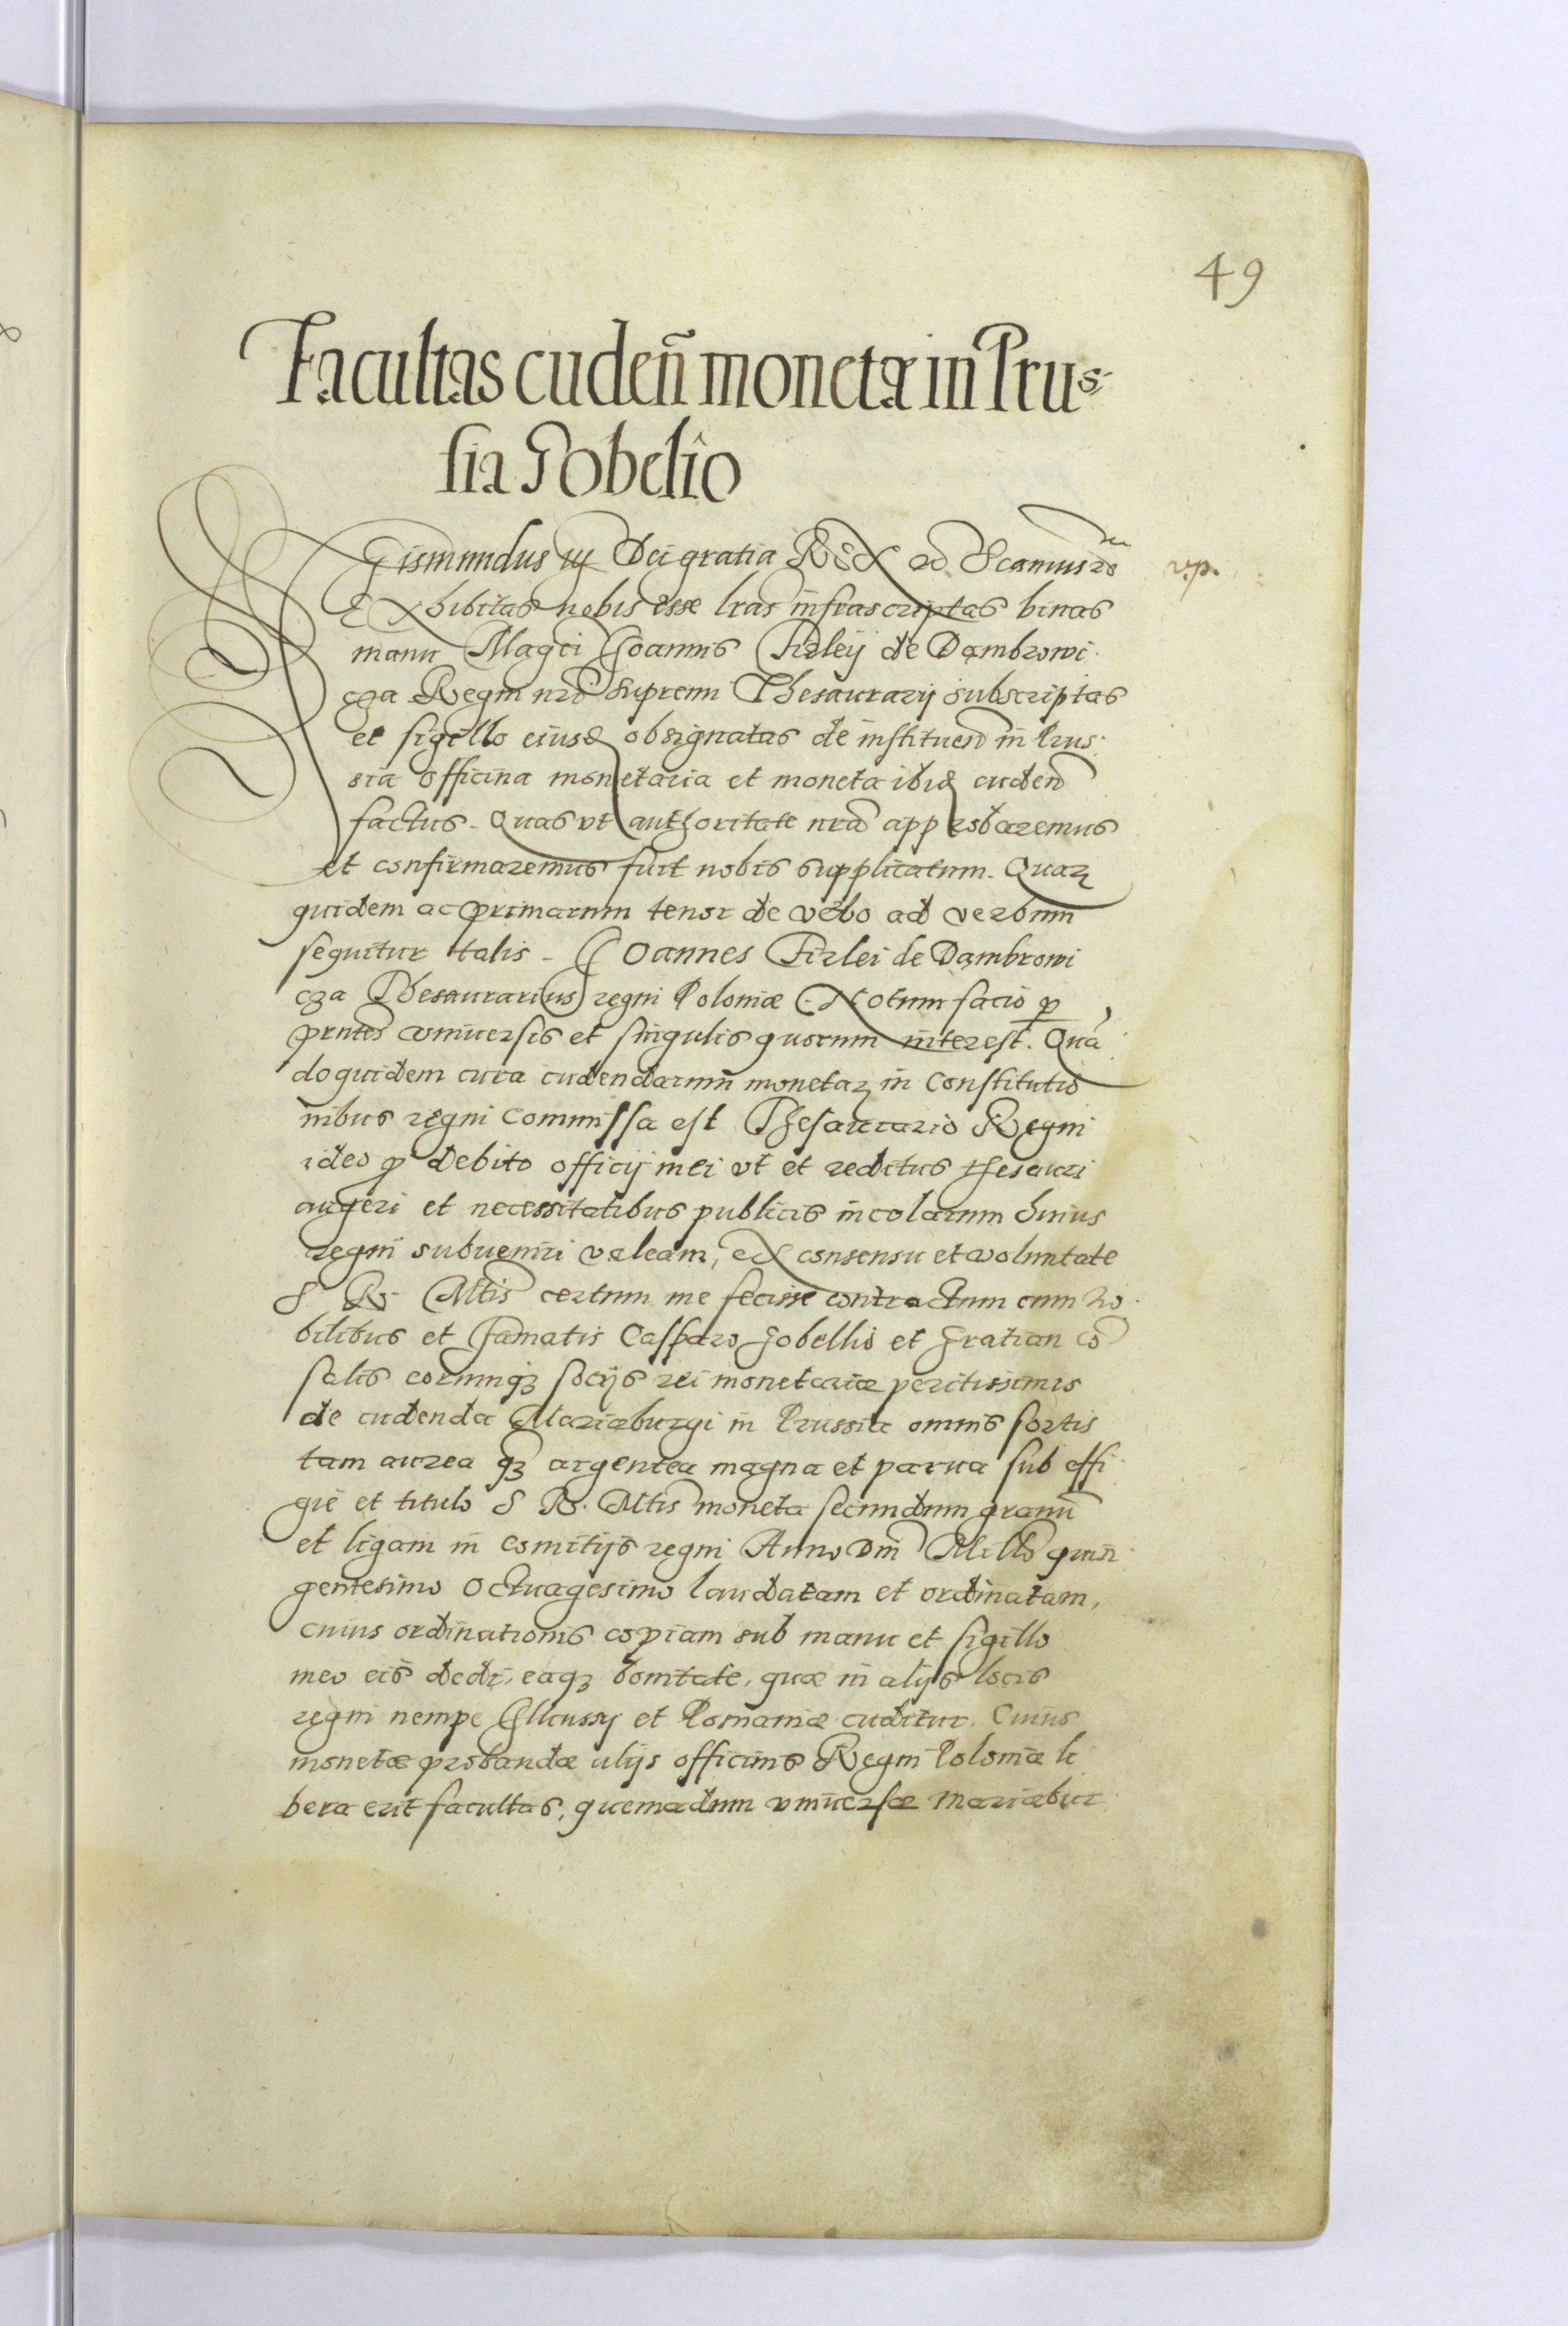 49
Facultas cudeñ monetæ in Prus
sia Gobelio
Sigismundus iij Dei gratia Rex etc. Scimus etc.
v.p.
Exhibitas nobis esse lras infrascriptas binas
manu Magci Joannis Firleij de Dąmbrowi
cza Regni nri supremi Thesaurarij subscriptas
et sigillo eiusd obsignatas de instituen in Prus
sia officina monetaria et moneta ibid cuden
factus. Quas vt authoritate nra approbaremus
et confirmaremus fuit nobis supplicatum. Quarz
quidem ac primarum tenor de verbo ad verbum
sequitur talis. Joannes Firlei de Dąmbrowi
cza Thesaurarius regni Poloniæ Notum facio p
prntes vniuersis et singulis quorum interest. Quā
doquidem cura cudendarum monetarz in Constitutio
nibus regni commissa est Thesaurario Regni
ideo p debito officij mei vt et reditus thesauri
augeri et necessitatibus publicis incolarum huius
regni subueniri valeam, ex consensu et voluntate
S R. Mtis certum me fecisse contractum cum No
bilibus et Famatis Casparo Gobellio et Gratian Co
salis eorumqz socijs rei monetariæ peritissimis
de cudenda Mariæburgi in Prussia omnis sortis
tam aurea qz argentea magna et parua sub effi
gie et titulo S R. Mtis moneta secundum granū
et ligam in comitijs regni Anno Dni Millo quin
gentesimo octuagesimo laudatam et ordinatam,
cuius ordinationis copiam sub manu et sigillo
meo eis dedi, eaqz bonitate, quæ in alijs locis
regni nempe Ilkussij et Posnaniæ cuditur. Cuius
monetæ probandæ alijs officinis Regni Poloniæ li
bera erit facultas, quemadmum vniuersæ Mariæbur